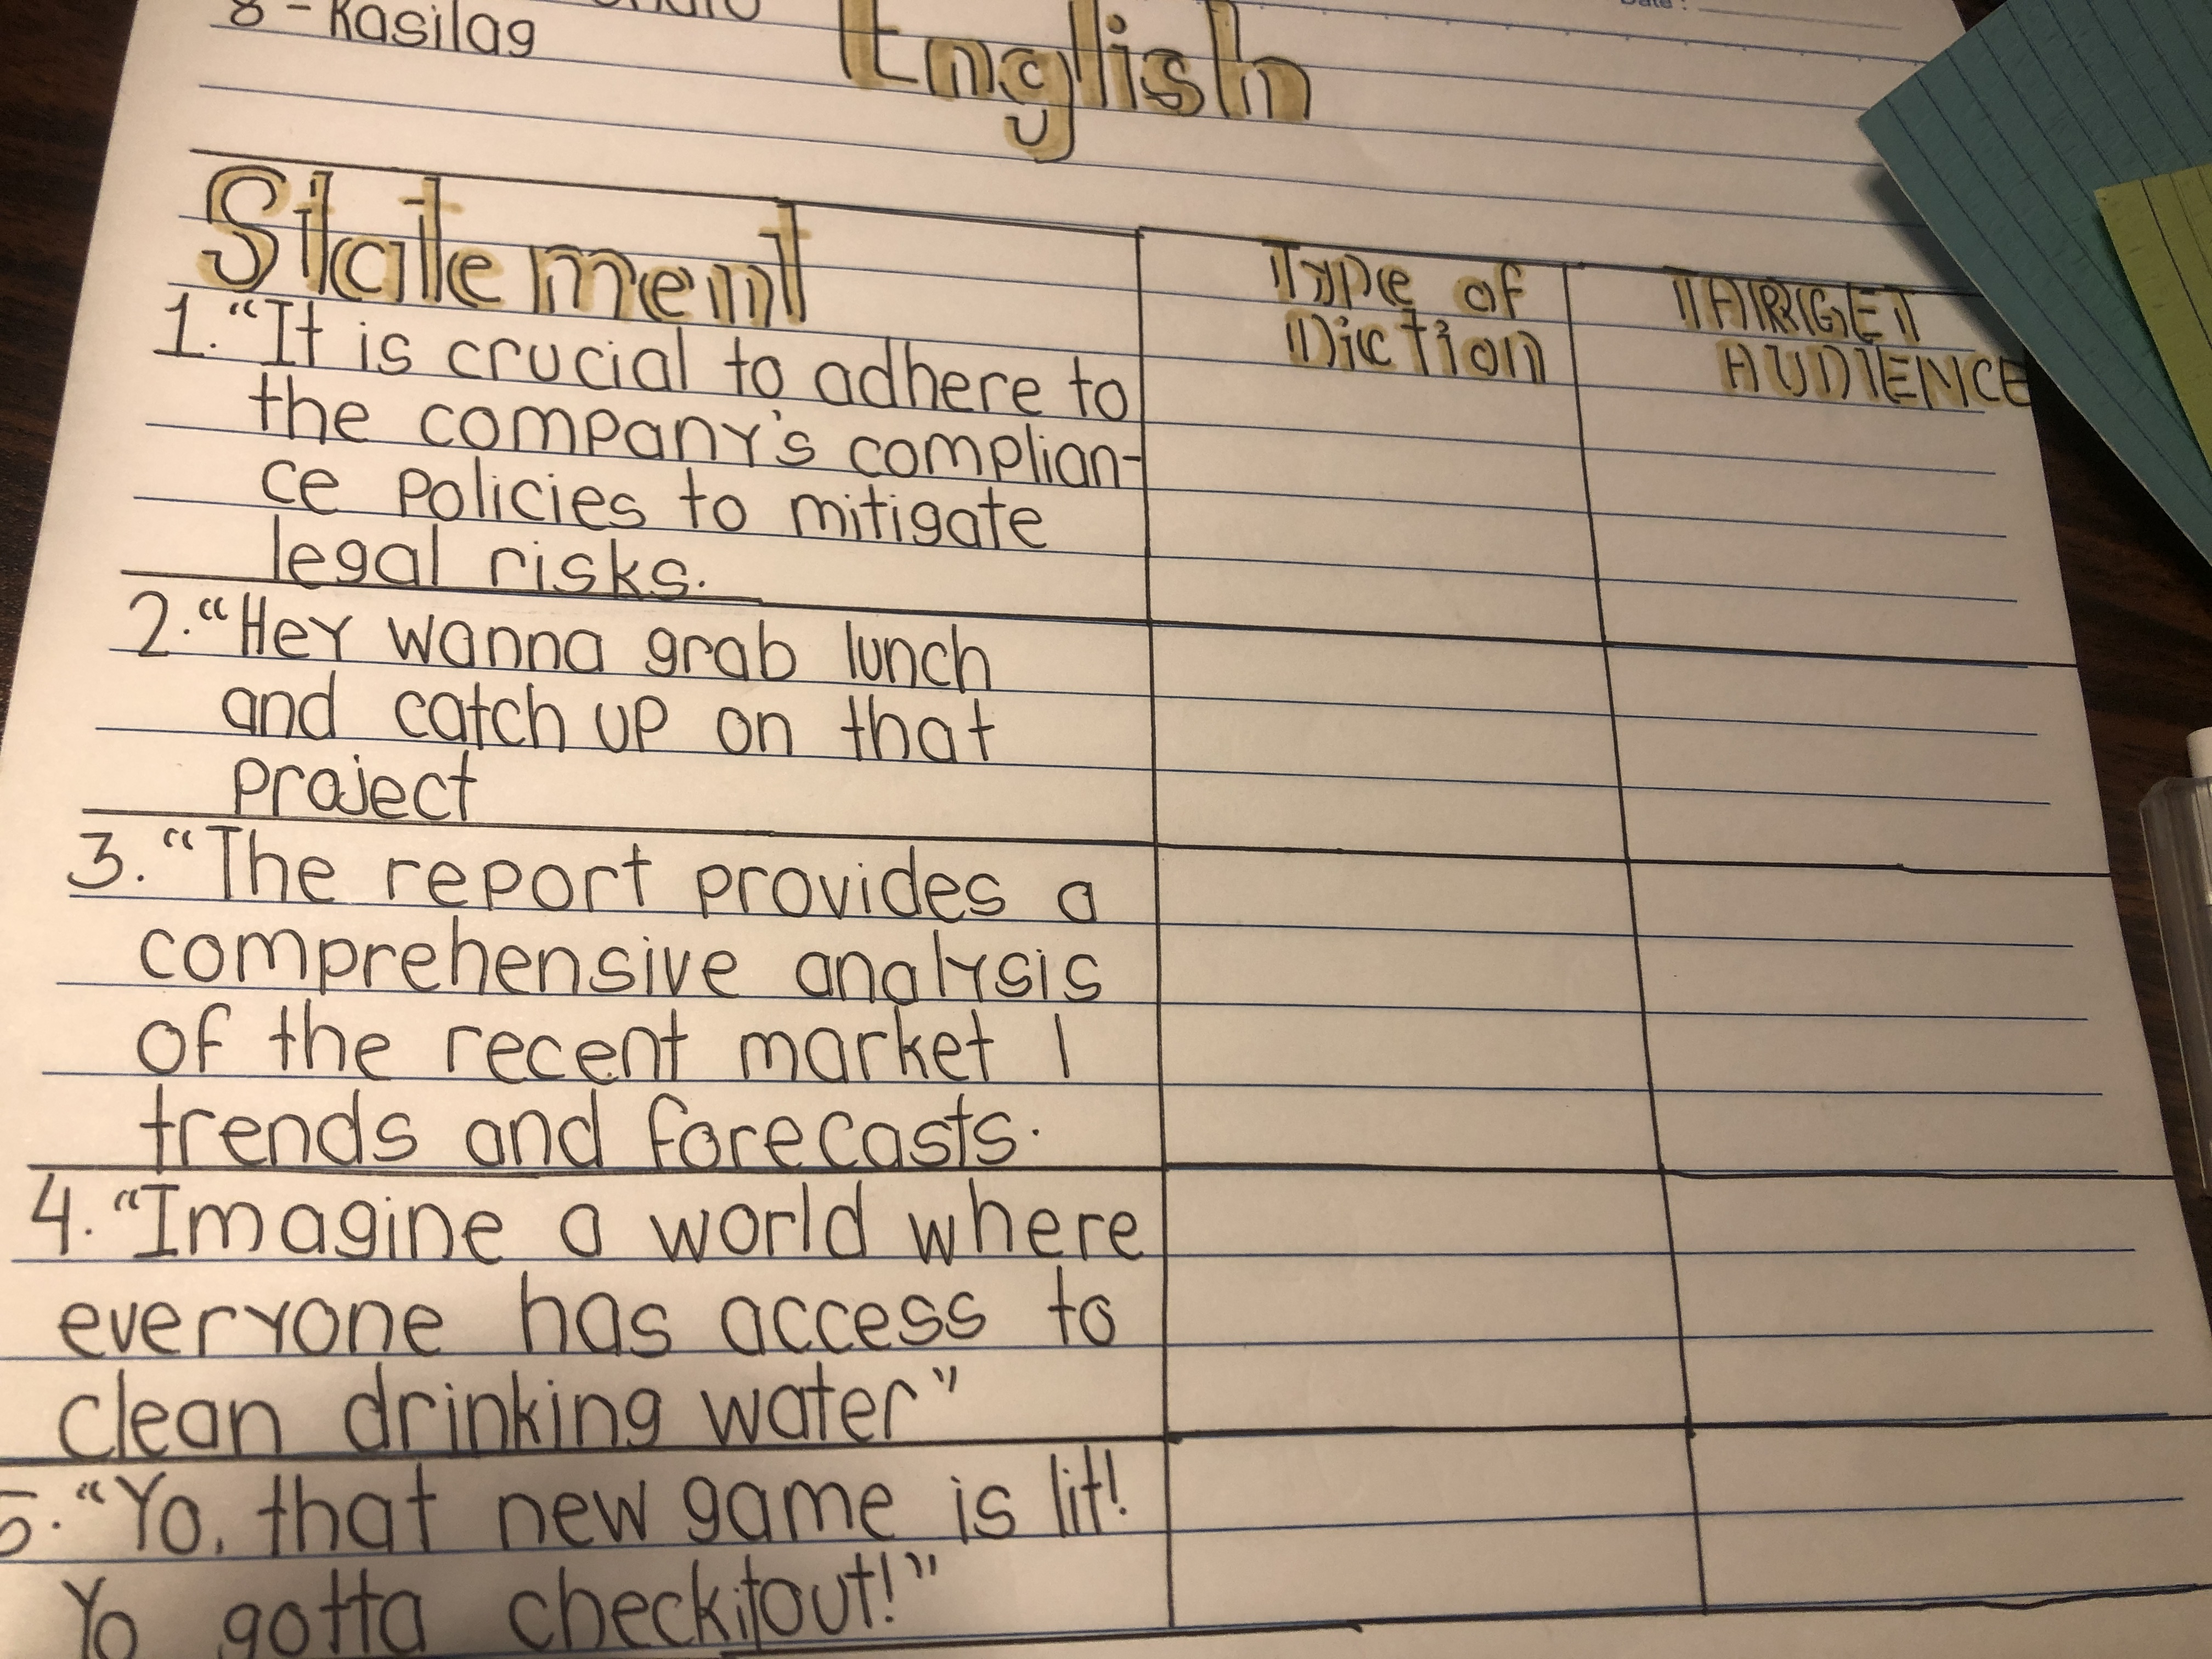 8 - Kasilag
Date:
English
Statement
Type of
Diction
TARGET
AUDIENCE
1. "It is crucial to adhere to
the company's complian-
ce policies to mitigate
legal risks.
2. "Hey wanna grab lunch
and catch up on that
project
3. "The report provides a
comprehensive analysis
of the recent market |
trends and forecasts.
4. "Imagine a world where
everyone has access to
clean drinking water"
5. "Yo, that new game is lit!
Yo gotta checkitout!"